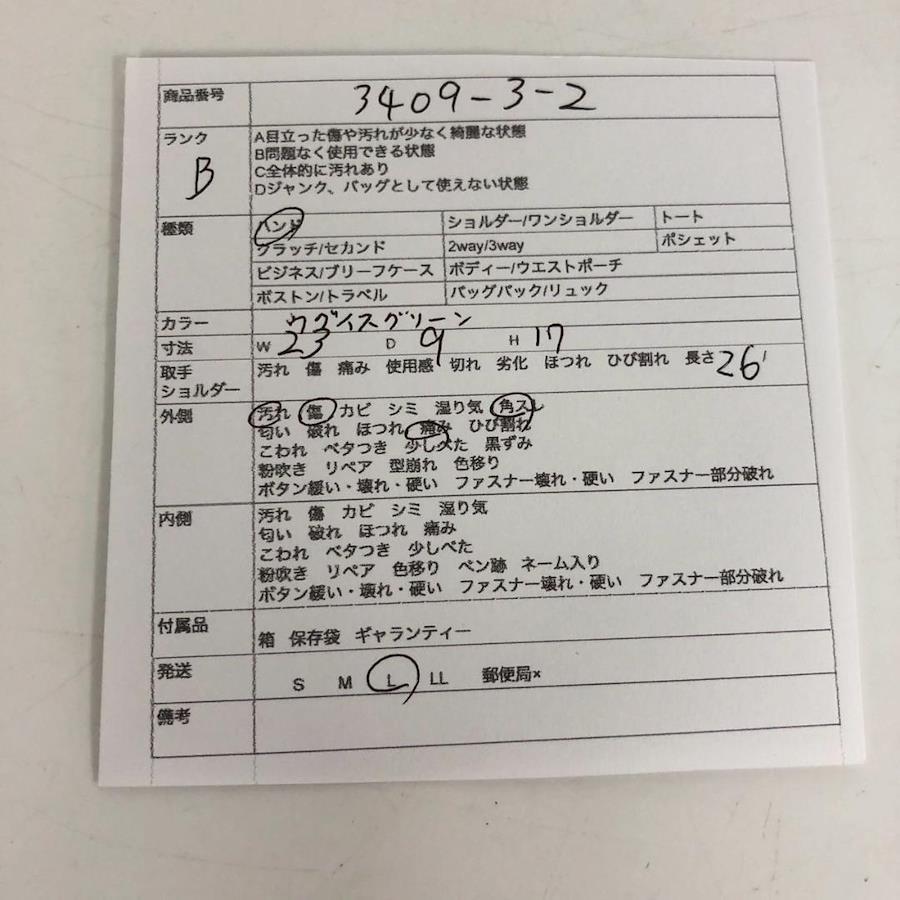 商品番号 3409-3-2
ランク B
A目立った傷や汚れが少なく綺麗な状態
B問題なく使用できる状態
C全体的に汚れあり
Dジャンク、バッグとして使えない状態
種類 ハンド ショルダー/ワンショルダー トート
クラッチ/セカンド 2way/3way ポシェット
ビジネス/ブリーフケース ボディー/ウエストポーチ
ボストン/トラベル バッグパック/リュック
カラー ウグイスグリーン
寸法 W 23 D 9 H 17
取手 汚れ 傷 痛み 使用感 切れ 劣化 ほつれ ひび割れ 長さ 26
ショルダー
外側 汚れ 傷 カビ シミ 湿り気 角スレ
匂い 破れ ほつれ 痛み ひび割れ
こわれ ベタつき 少しべた 黒ずみ
粉吹き リペア 型崩れ 色移り
ボタン緩い・壊れ・硬い ファスナー壊れ・硬い ファスナー部分破れ
内側 汚れ 傷 カビ シミ 湿り気
匂い 破れ ほつれ 痛み
こわれ ベタつき 少しべた
粉吹き リペア 色移り ペン跡 ネーム入り
ボタン緩い・壊れ・硬い ファスナー壊れ・硬い ファスナー部分破れ
付属品 箱 保存袋 ギャランティー
発送 S M L LL 郵便局×
備考